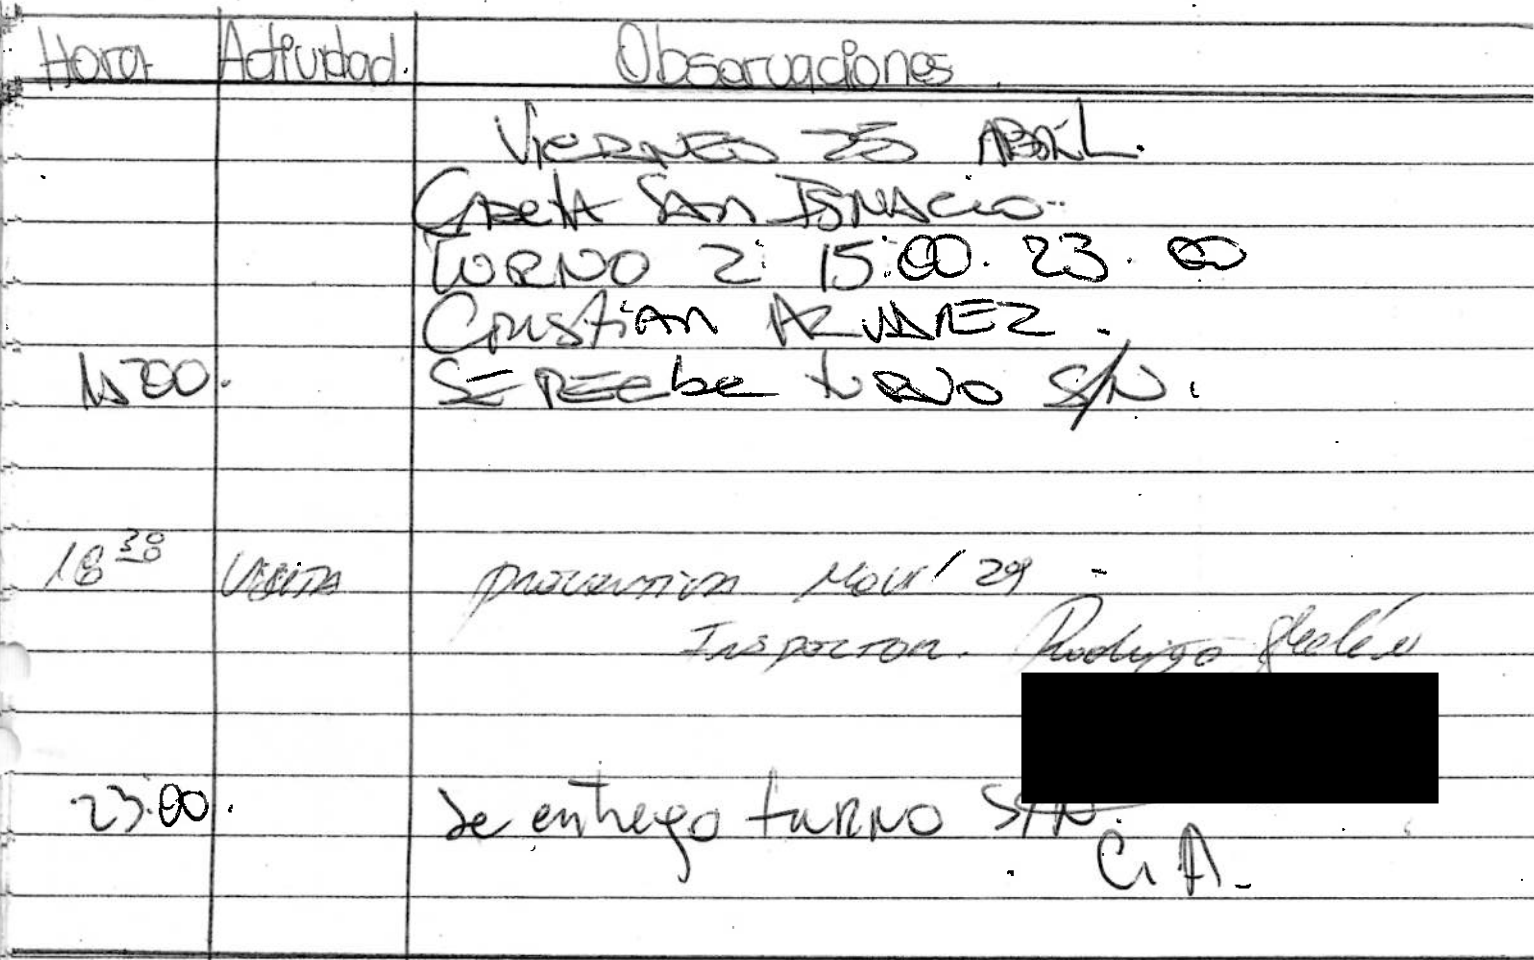 Hora Actividad. Observaciones.
Viernes 25 Abril.
Caseta San Ignacio.
Turno 2: 15:00. 23.00
Cristian Alvarez.
1500. Se recibe turno S/N.
18 30 Visita preventiva Movil 29 -
Inspector. Rodrigo
23.00. Se entrego turno S/N.
C. A.